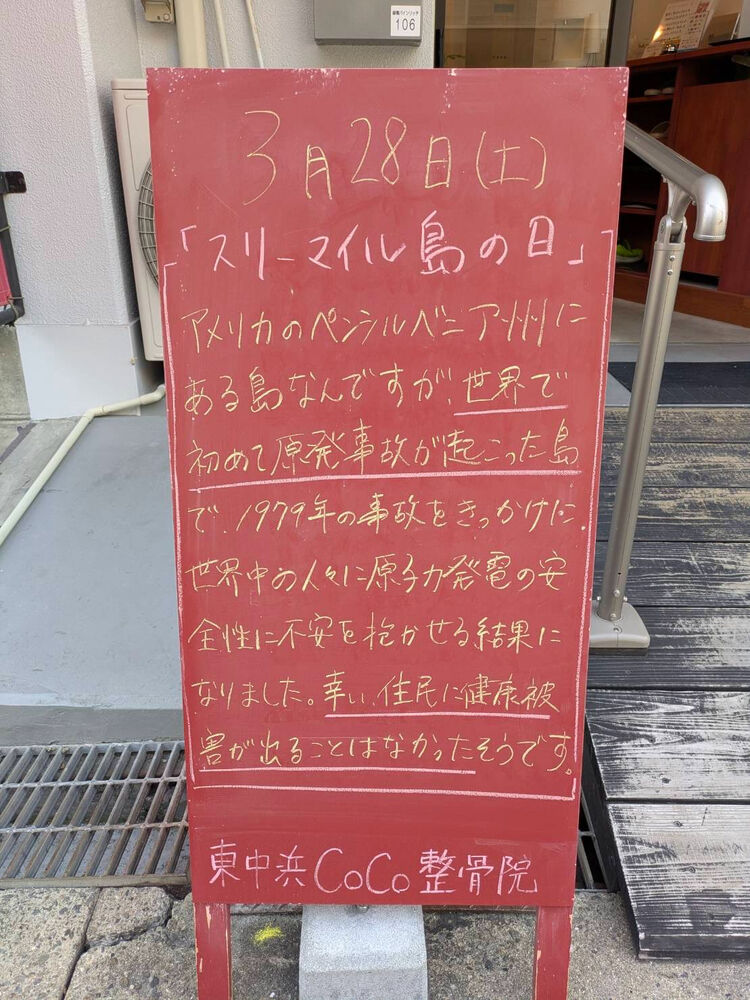 106
3月28日(土)
「スリーマイル島の日」
アメリカのペンシルベニア州に
ある島なんですが、世界で
初めて原発事故が起こった島
で、1979年の事故をきっかけに、
世界中の人々に原子力発電の安
全性に不安を抱かせる結果に
なりました。幸い、住民に健康被
害が出ることはなかったそうです。
東中浜CoCo整骨院